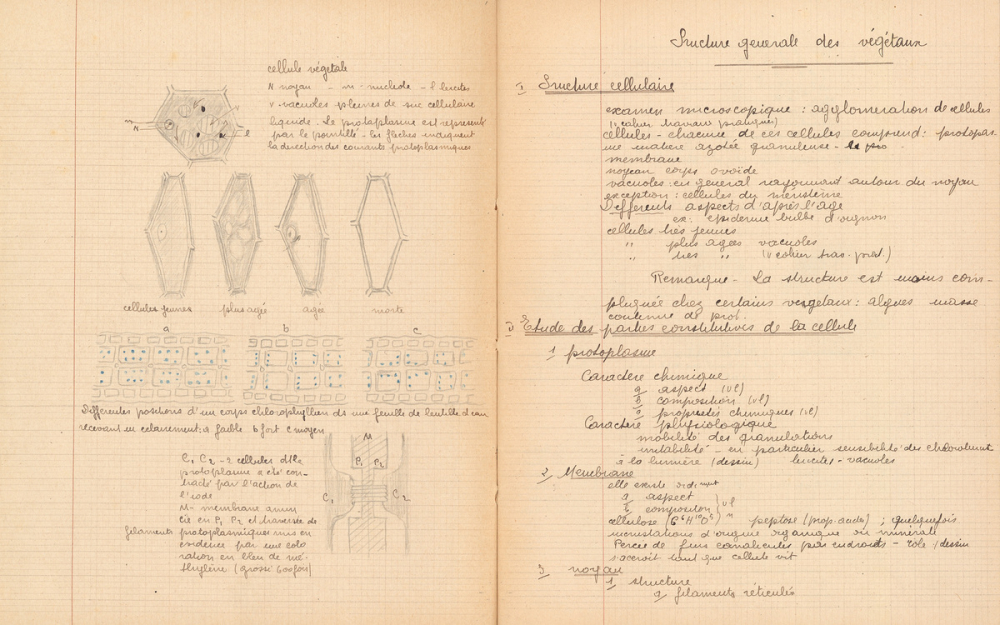 cellule végétale
N noyau - m - nucleole - l leucites
V vacuoles pleines de suc cellulaire
liquide. Le protoplasme est représenté
par le pointillé - les flèches indiquent
la direction des courants protoplasmiques
N
l
cellules jeunes plus agée agée morte
a b c
Differentes positions d'un corps chlorophyllien ds une feuille de lentille d'eau
recevant un eclairement; a faible b fort c moyen
M
P1 P2
C1 C2
C1 C2 - 2 cellules dt le
protoplasme a été con-
tracté par l'action de
l'iode
M - membrane amin
cie en P1 P2 et traversée de
filaments protoplasmiques mis en
evidence par une colo
ration en bleu de mé-
thylène (grossi 600 fois)
Sructure generale des végétaux
1) Sructure cellulaire
examen microscopique : agglomeration de cellules
(v. cahier travaux pratiques)
cellules - chacune de ces cellules comprend: protoplas.
une matière azotée granuleuse -
membrane
noyau corps ovoïde
vacuoles: en general rayonnant autour du noyau
exception: cellules du méristème
Differents aspects d'après l'age
ex: epiderme bulbe d'oignon
cellules très jeunes
" plus agées vacuoles
" très " (v cahier trav. prat.)
Remarque - La structure est moins com-
pliquée chez certains vegetaux: algues masse
continue de prot.
2) Etude des parties constitutives de la cellule
1 protoplasme
Caractère chimique
a aspect (vl)
b composition (vl)
c propriétés chimiques (vl)
Caractère physiologique
mobilité des granulations
irritabilité - en particulier sensibilité des chloroleucit
à la lumière (dessin) leucites - vacuoles
2 Membrane
elle existe ordinmt
a aspect
b composition } vl
cellulose (C6H10O5)n peptose (prop. acide) ; quelquefois
incrustations d'origine organique ou minérale
Percée de fins canalicules par endroits - rôle (dessin
s'accroit tant que cellule vit
3 noyau
1 structure
a filaments réticulés